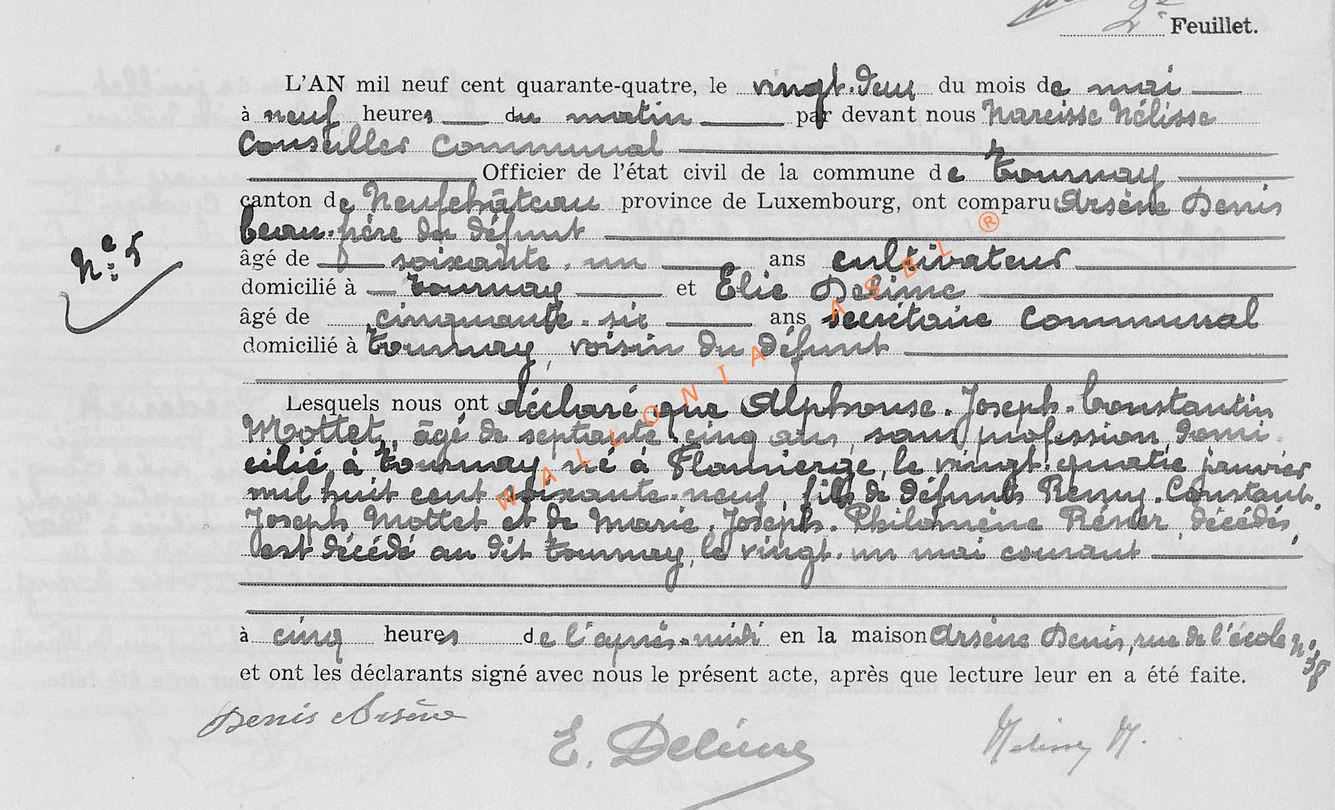 2e Feuillet.
L'AN mil neuf cent quarante-quatre, le vingt-deux du mois de mai
à neuf heures du matin par devant nous Narcisse Nélisse
Conseiller Communal
Officier de l'état civil de la commune de Tournay
canton de Neufchâteau province de Luxembourg, ont comparu Arsène Denis
beau-frère du défunt
N° 5
âgé de soixante-un ans cultivateur
domicilié à Tournay et Elie
âgé de cinquante-six ans secrétaire communal
domicilié à Tournay, voisin du défunt
Lesquels nous ont déclaré que Alphonse-Joseph-Constantin
Mottet, âgé de septante-cinq ans, sans profession domi-
cilié à Tournay, né à Flamierge, le vingt-quatre janvier
mil huit cent soixante-neuf, fils de défunts Remy-Constant-
Joseph Mottet et de Marie-Joseph-Philomène décédés,
est décédé au dit Tournay, le vingt-un mai courant
à cinq heures de l'après-midi en la maison Arsène Denis, rue de l'école n° 38
et ont les déclarants signé avec nous le présent acte, après que lecture leur en a été faite.
Denis Arsène
E.
N.
WALLONIA ASBL ®